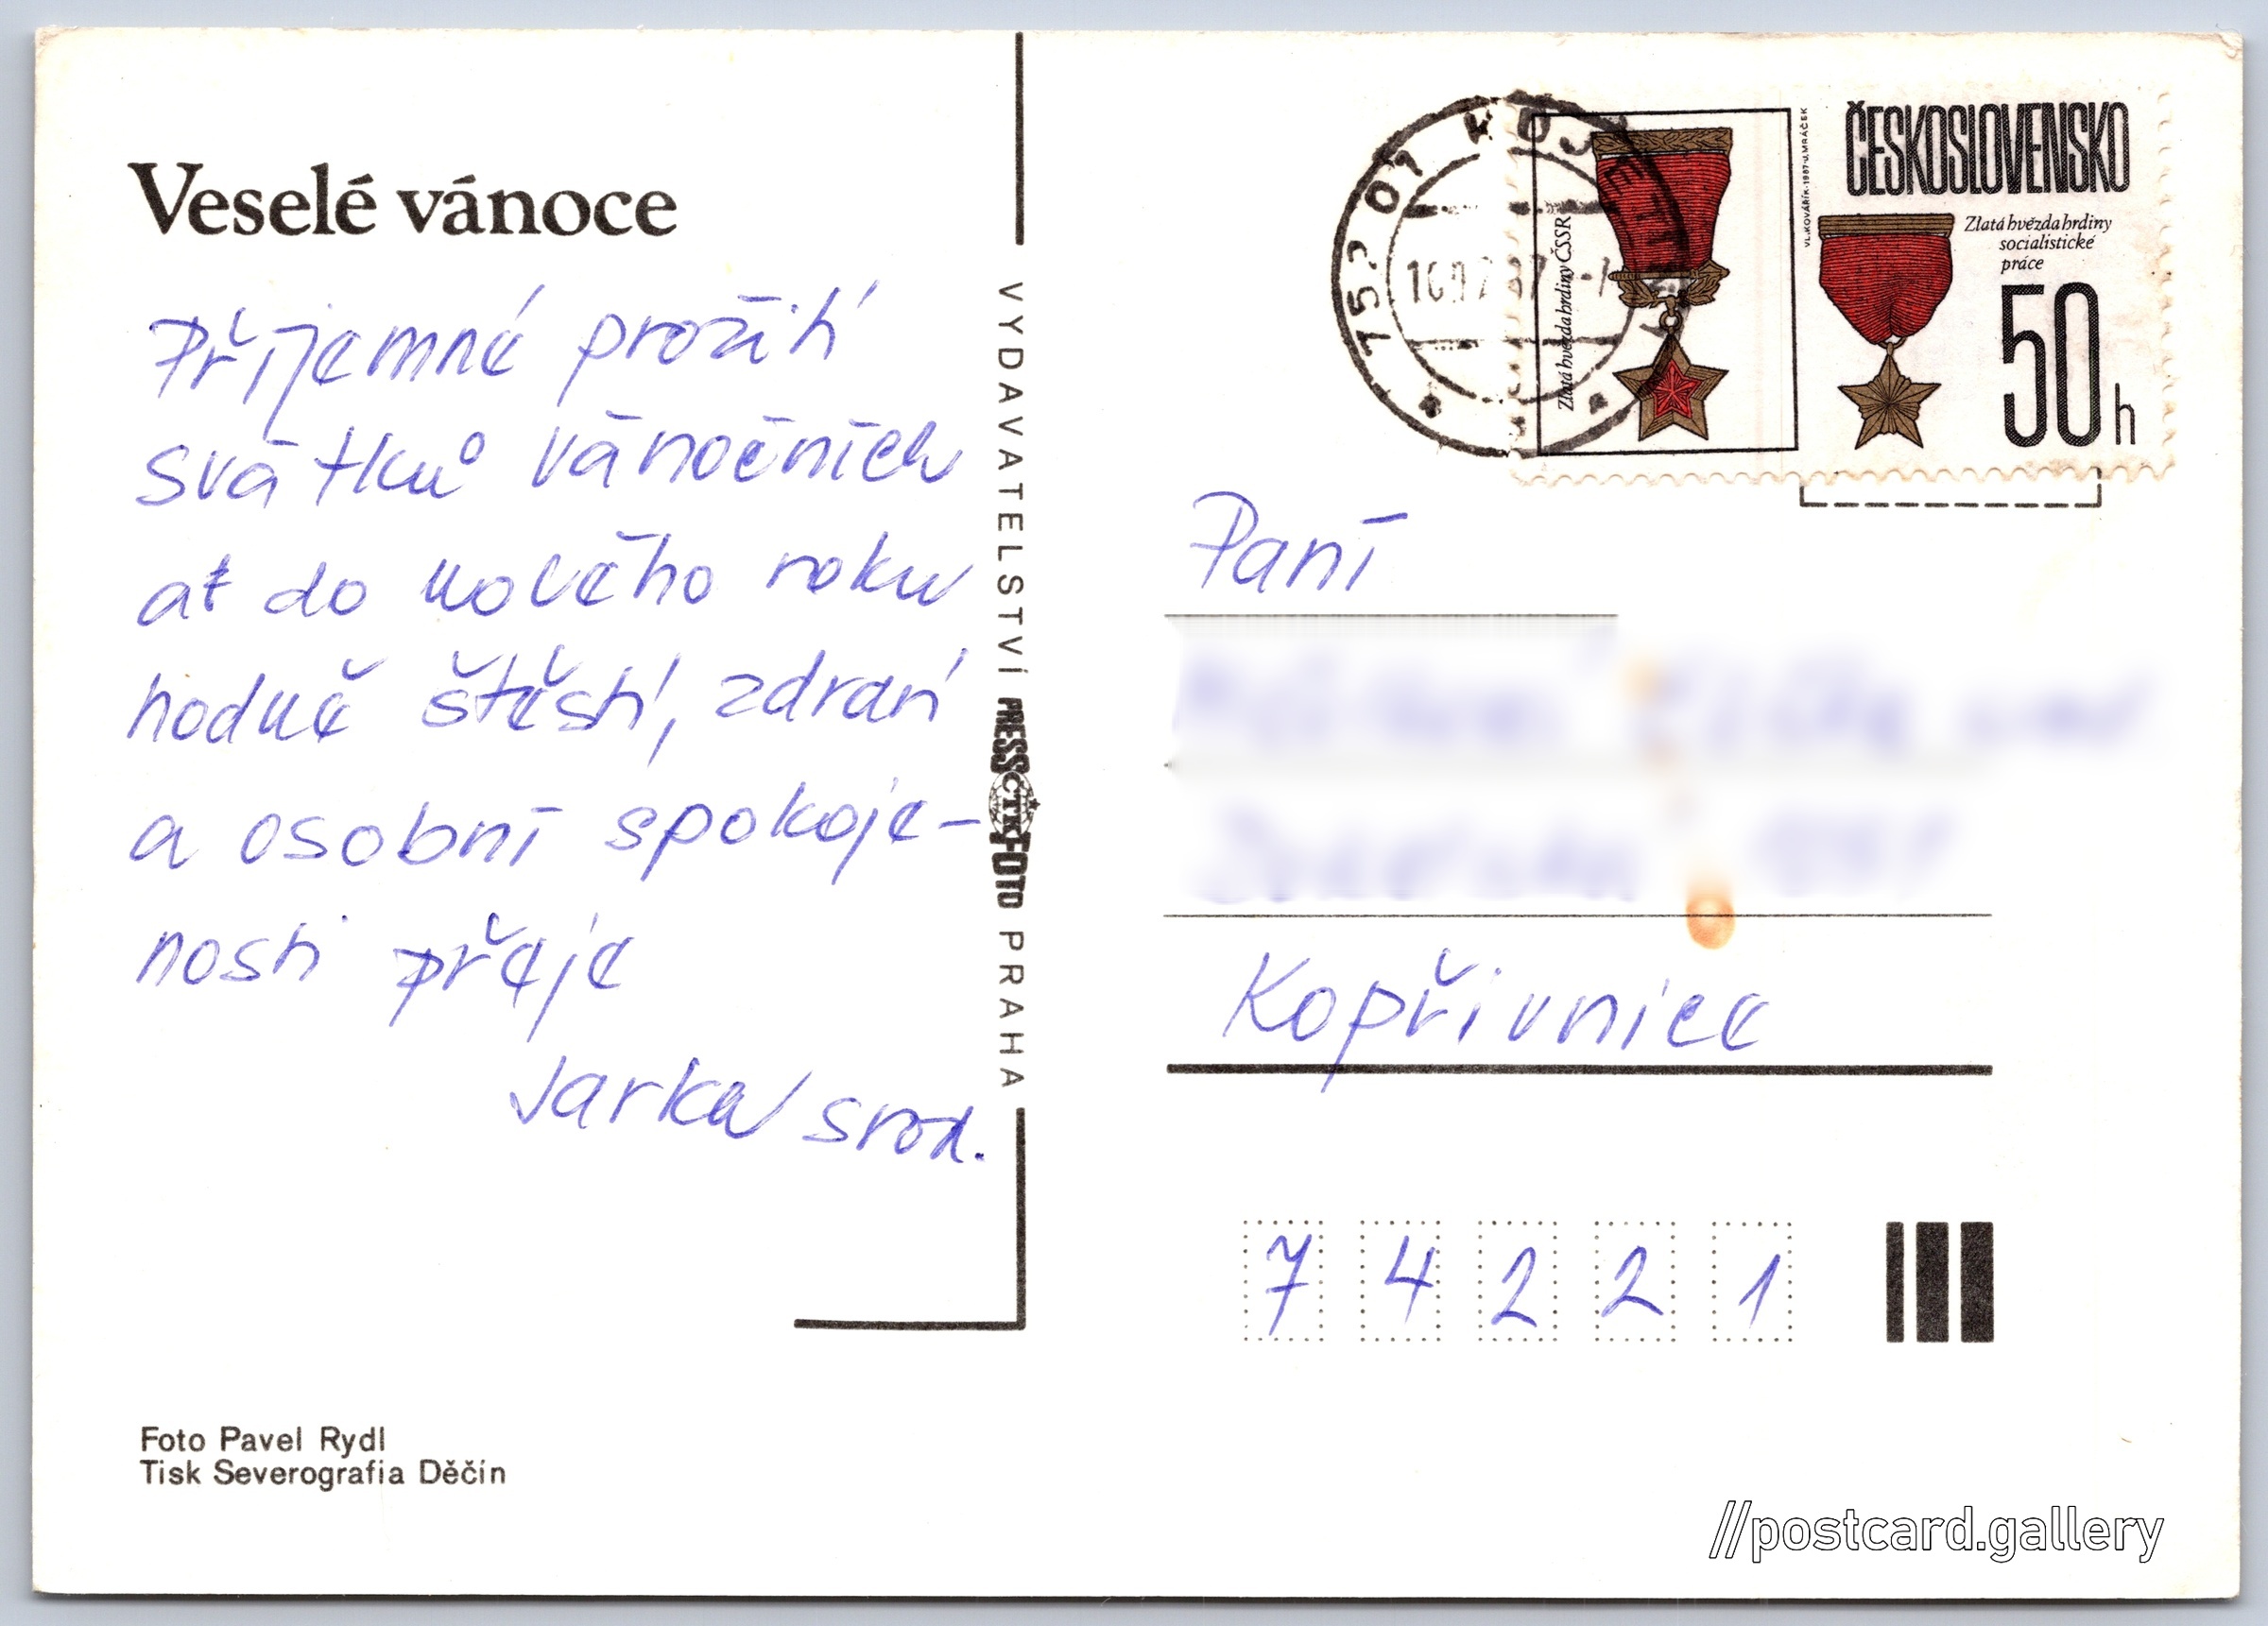 Veselé vánoce
Příjemné prožití
svátků vánočních
ať do nového roku
hodně štěstí, zdraví
a osobní spokoje-
nosti přeje
Jarka
VYDAVATELSTVÍ PRESSFOTO PRAHA
ČTK
Foto Pavel Rydl
Tisk Severografia Děčín
752 01 KOJETÍN
Zlatá hvězda hrdiny ČSSR
VL. KOVÁŘÍK-1987-J. MRÁČEK
ČESKOSLOVENSKO
Zlatá hvězda hrdiny
socialistické
práce
50h
Paní
Kopřivnice
7 4 2 2 1
//postcard.gallery